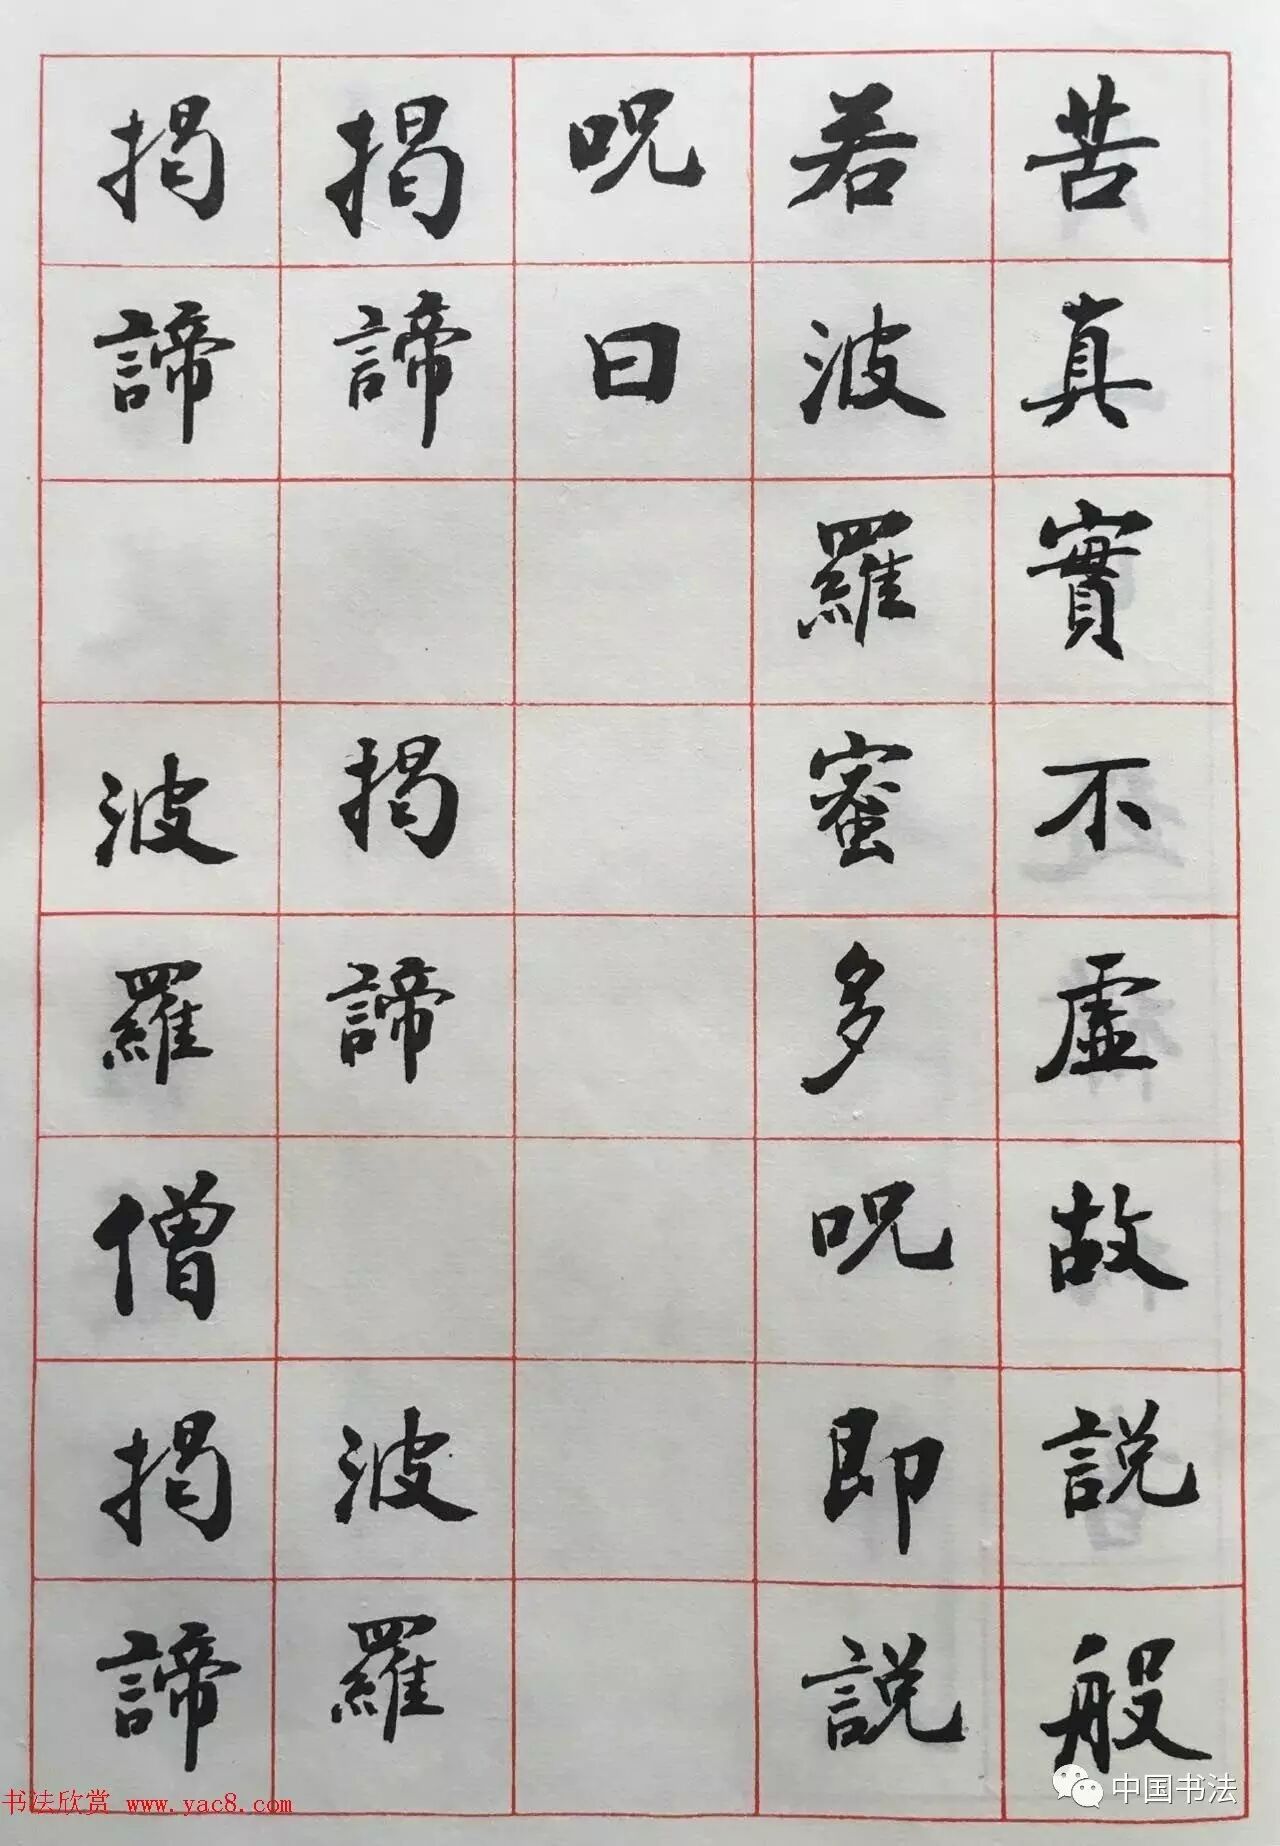 苦真實不虛故説般
若波羅蜜多呪即説
呪曰
揭諦 揭諦 波羅
揭諦 波羅僧揭諦
书法欣赏 www.yac8.com
中国书法